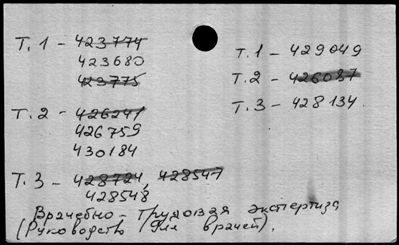 Т. 1 - 423774
423680
423775
Т. 2 - 426241
426759
430184
Т. 3 - 428724, 428547
428548
Т. 1 - 429049
Т. 2 - 426087
Т. 3 - 428134.
Врачебно - Трудовая экспертиза
(Руководство для врачей).